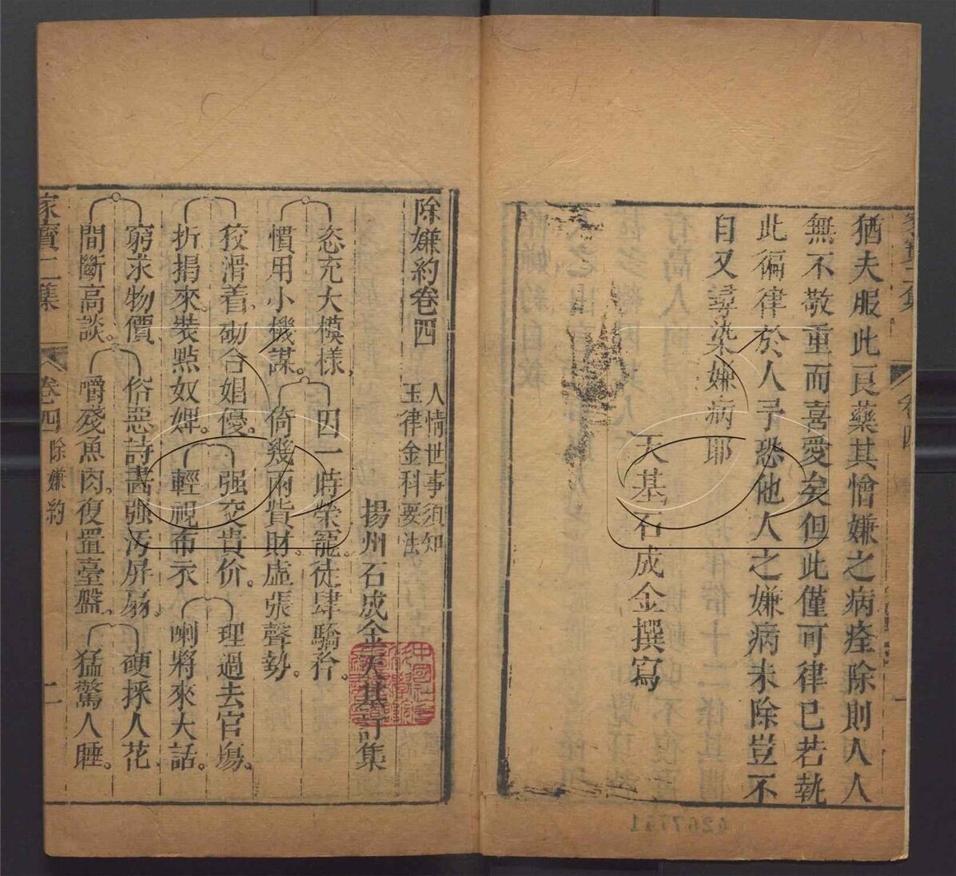 猶夫服此良藥其憎嫌之病痊除則人人
無不敬重而喜愛矣但此僅可律已若執
此徧律於人予恐他人之嫌病未除豈不
自又尋染嫌病耶
天基石成金撰寫
除嫌約卷四
人情世事須知
玉律金科要法
揚州石成金天基訂集
恣充大模樣 四一時榮寵徒肆驕矜
慣用小機謀 倚幾兩貲財虛張聲勢
狡滑着砌合娼優 强交貴价 理過去官塲
折揖來裝點奴婢 輕視布 謝將來大話
窮求物價 俗惡詩書强汚屏扇 硬採人花
間斷高談 嚼殘魚肉復置臺盤 猛驚人睡
家寶二集 卷四 除嫌約 一
4267751